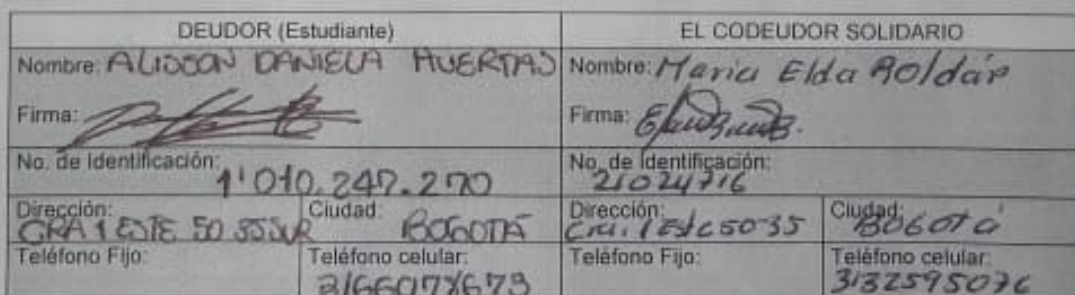 DEUDOR (Estudiante) EL CODEUDOR SOLIDARIO
Nombre: ALISSON DANIELA HUERTAS Nombre: Maria Elda Roldán
Firma: Firma:
No. de Identificación: 1'010.247.270 No. de Identificación: 21024716
Dirección: CRA 1 ESTE 50 35 SUR Ciudad: BOGOTÁ Dirección: Cra. 1 Este 50-35 Ciudad: BOGOTÁ
Teléfono Fijo: Teléfono celular: Teléfono Fijo: Teléfono celular:
3132595076